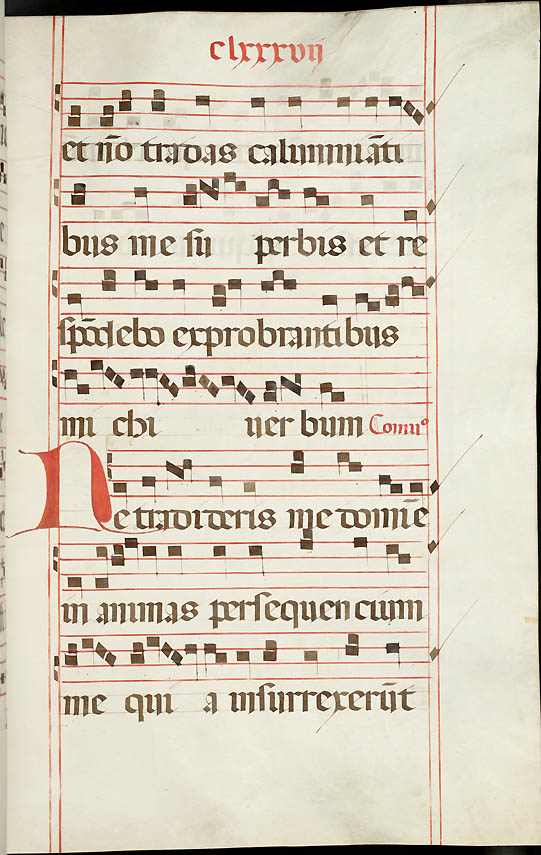 clxxxvii
et nō tradas calumniāti
bus me su perbis et re
spōdebo exprobrantibus
mi chi uer bum Comuº
Ne tradideris me domīe
in animas persequencium
me qui a insurrexerūt